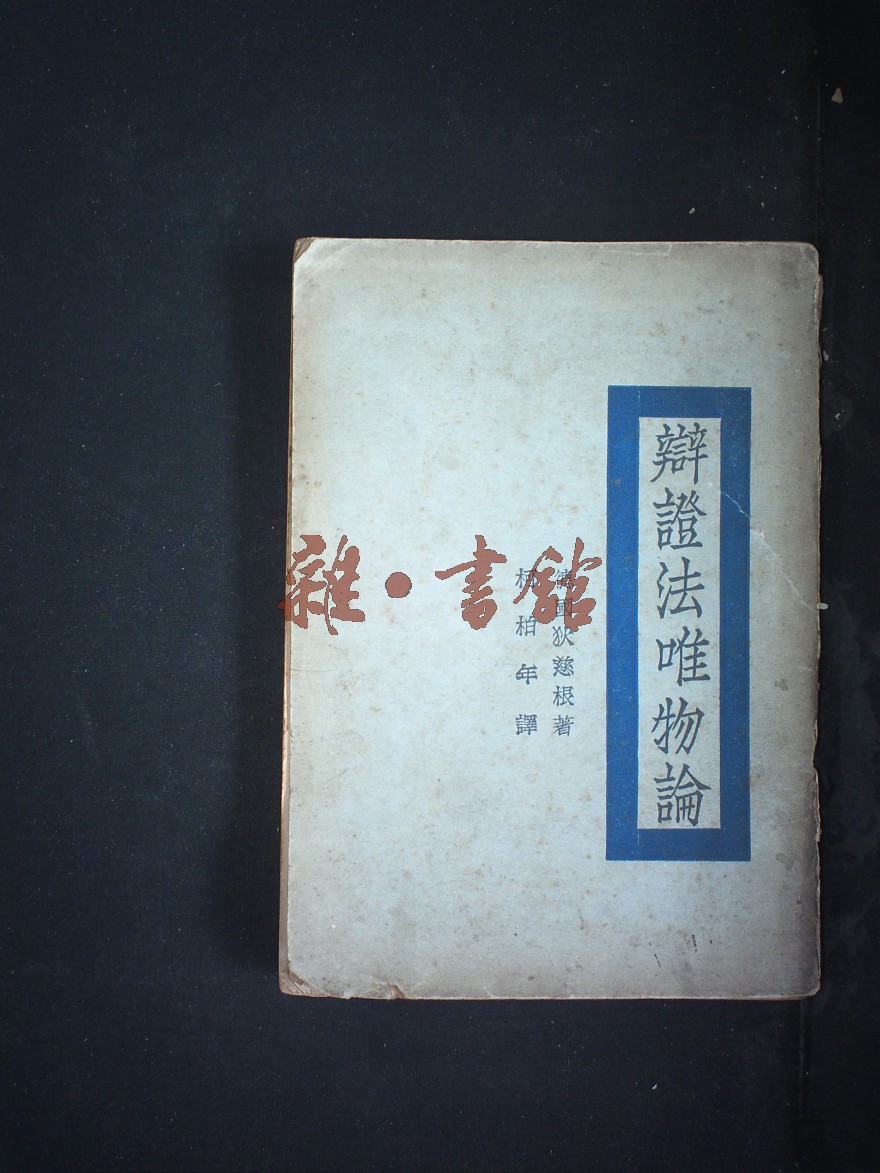 辯證法唯物論
德國狄慈根著
柯柏年譯
雜·書館